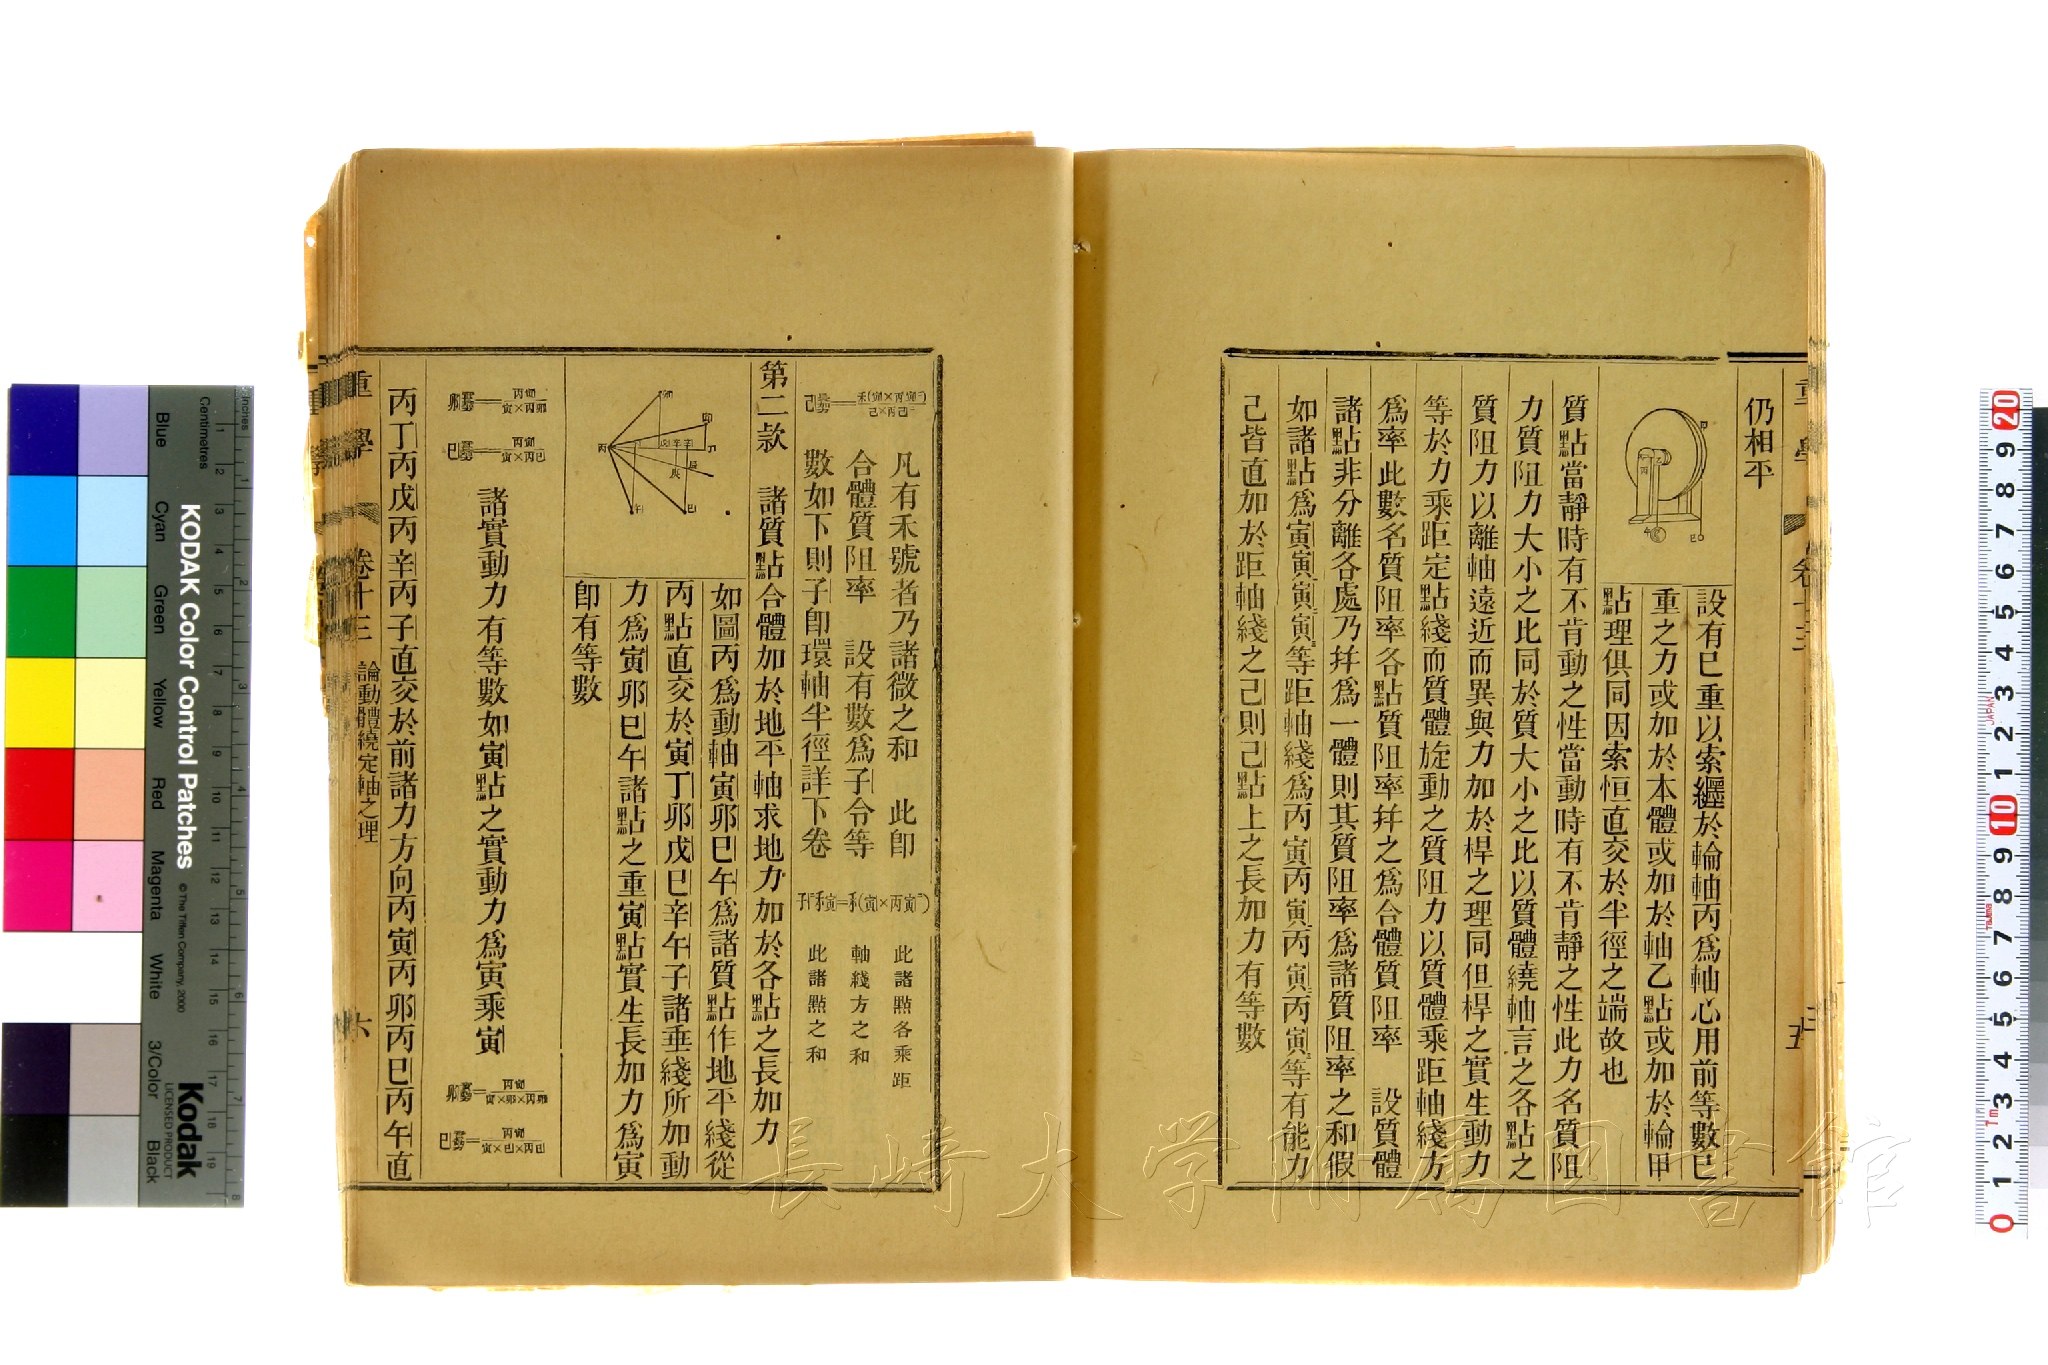 仍相平
設有巳重以索纒於輪軸丙爲軸心用前等數巳
重之力或加於本體或加於軸乙點或加於輪甲
點理俱同因索恒直交於半徑之端故也
質點當靜時有不肯動之性當動時有不肯靜之性此力名質阻
力質阻力大小之比同於質大小之比以質體繞軸言之各點之
質阻力以離軸遠近而異與力加於桿之理同但桿之實生動力
等於力乘距定點綫而質體旋動之質阻力以質體乘距軸綫方
爲率此數名質阻率各點質阻率幷之爲合體質阻率　設質體
諸點非分離各處乃幷爲一體則其質阻率爲諸質阻率之和假
如諸點爲寅寅寅寅等距軸綫爲丙寅丙寅丙寅丙寅等有能力
己皆直加於距軸綫之己則己點上之長加力有等數
凡有禾號者乃諸微之和　此卽
合體質阻率　設有數爲子合等
數如下則子卽環軸半徑詳下卷
此諸點各乘距
軸綫方之和
此諸點之和
第二款　諸質點合體加於地平軸求地力加於各點之長加力
如圖丙爲動軸寅卯巳午爲諸質點作地平綫從
丙點直交於寅丁卯戊巳辛午子諸垂綫所加動
力爲寅卯巳午諸點之重寅點實生長加力爲寅
卽有等數
諸實動力有等數如寅點之實動力爲寅乘寅
丙丁丙戊丙辛丙子直交於前諸力方向丙寅丙卯丙巳丙午直
重學
卷十三
論動體繞定軸之理
六
KODAK Color Control Patches
© The Tiffen Company, 2000
Kodak
LICENSED PRODUCT
Inches
Centimetres
Blue
Cyan
Green
Yellow
Red
Magenta
White
3/Color
Black
長崎大学附属図書館
JAPAN